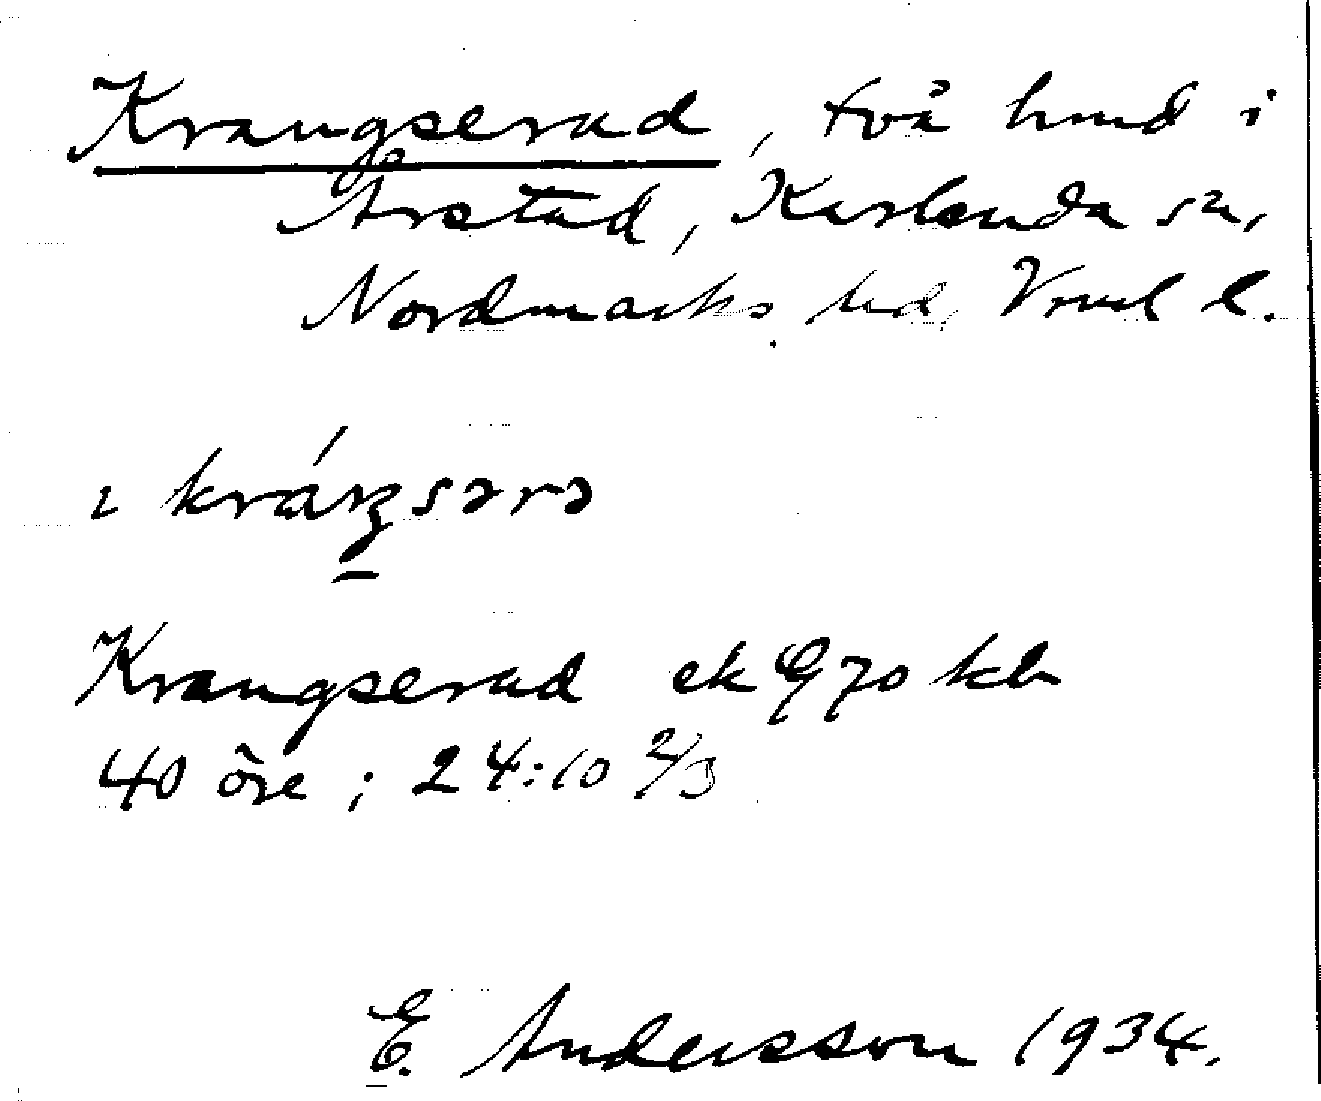 Krangserud, två hmd i
Årstad, Karlanda sn,
Nordmarks hd, Vrml l.
ı kráŋsərə
Krangserud ek G 70 kbr
40 öre ; 24:10 2/3
E. Andersson 1934.